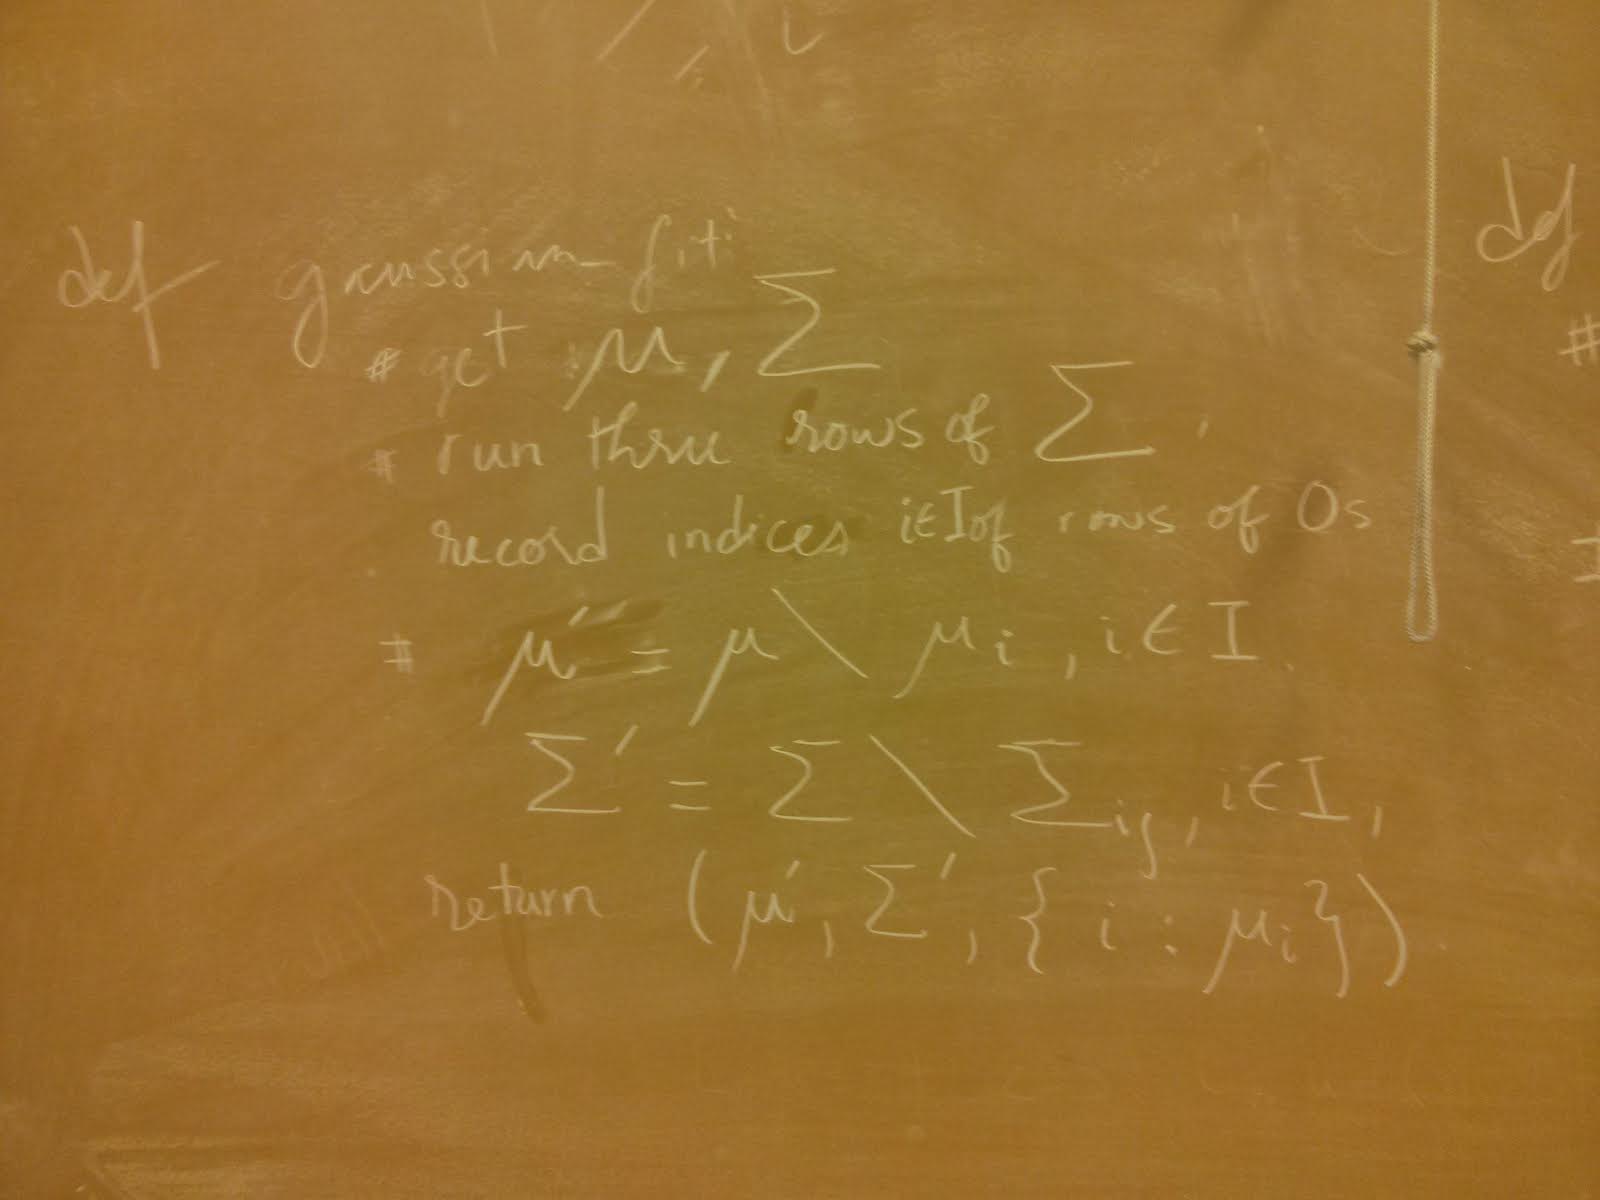 i
def gaussian_fit:
# get μ, Σ
# run thru rows of Σ,
record indices i∈I of rows of 0s
# μ' = μ \ μi, i∈I
Σ' = Σ \ Σij, i∈I,
return (μ', Σ', {i : μi})
def
#